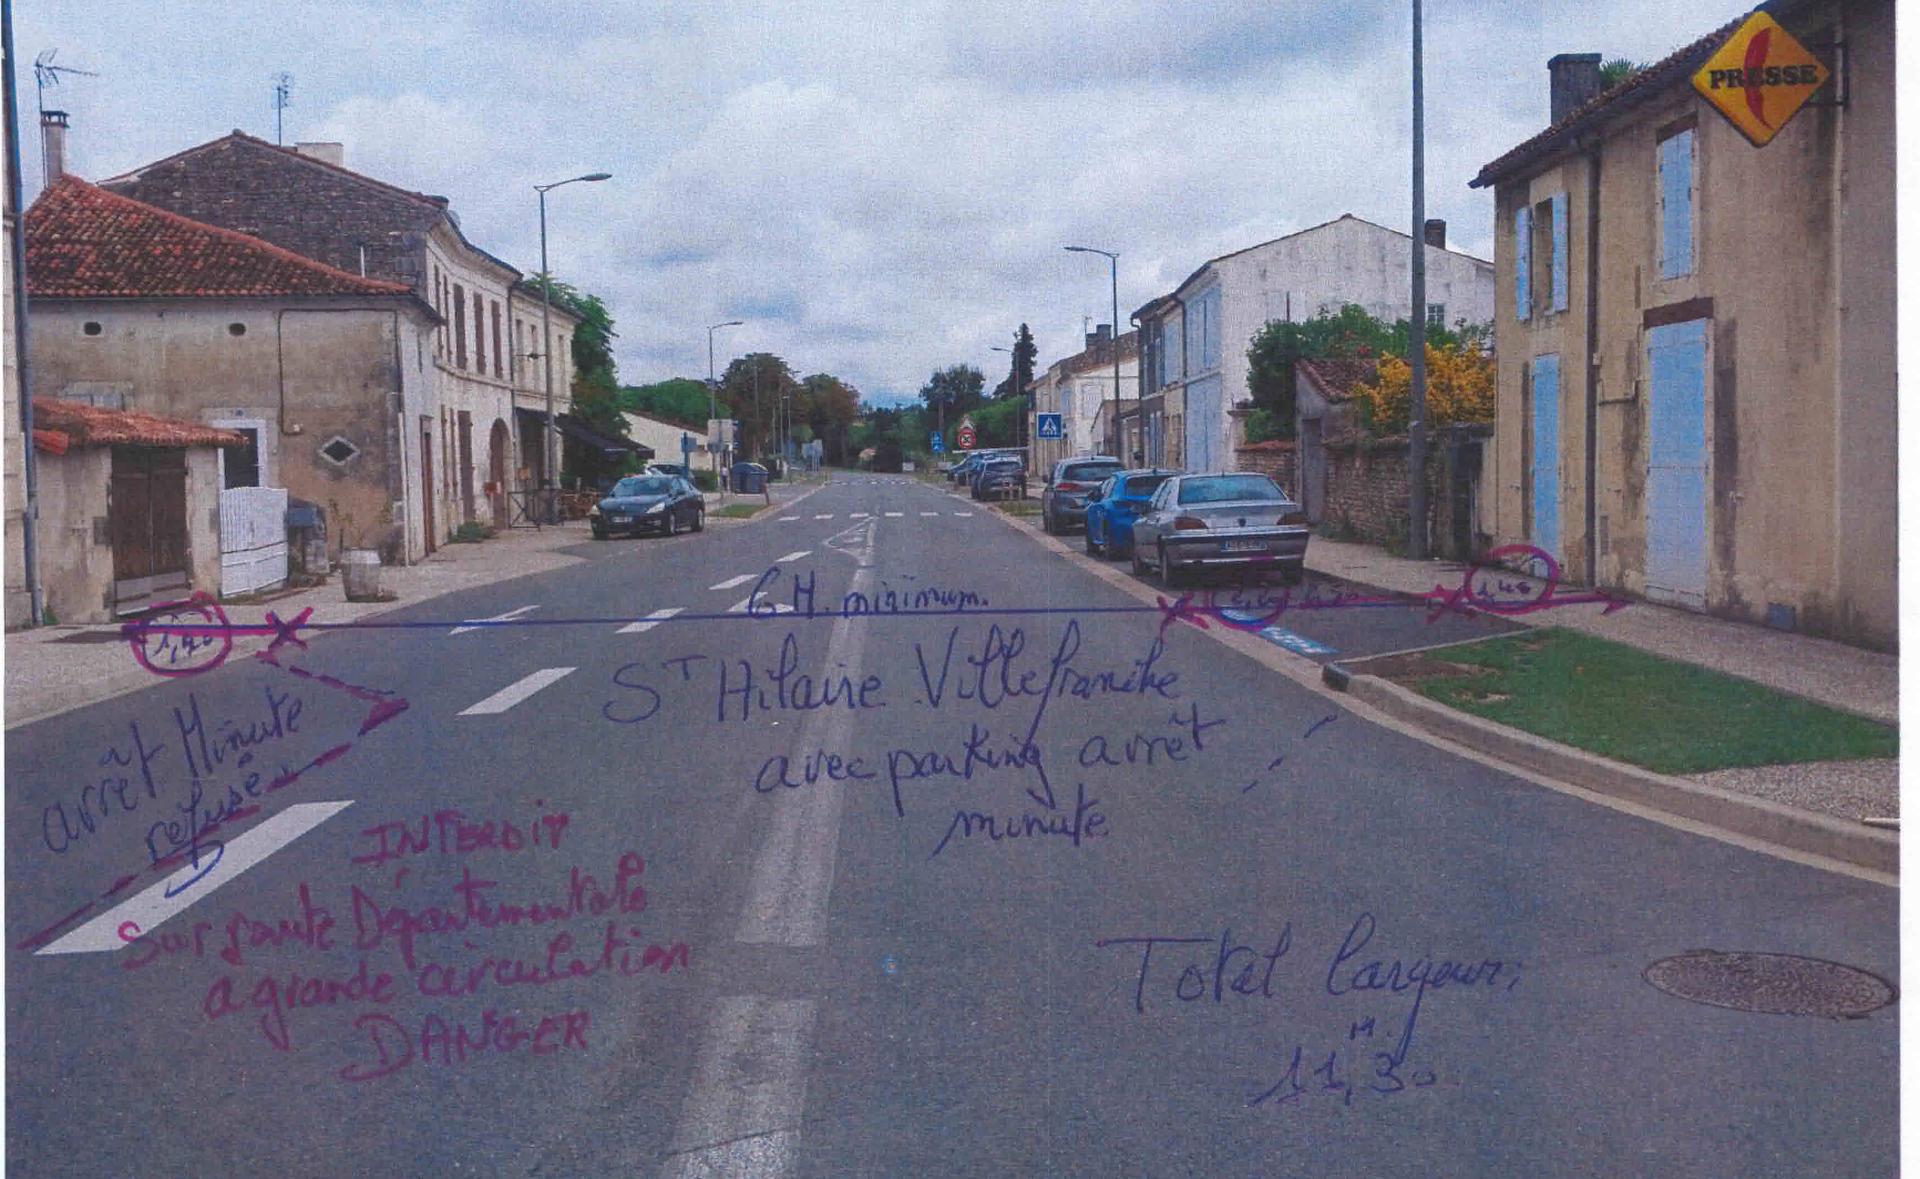 PRESSE
6 M. minimum.
1,40
1,45
St Hilaire Villefranche
avec parking arrêt
minute
arrêt Minute
refusé
INTERDIT
Sur route Départementale
a grande circulation
DANGER
Total largeur:
M.
11,30